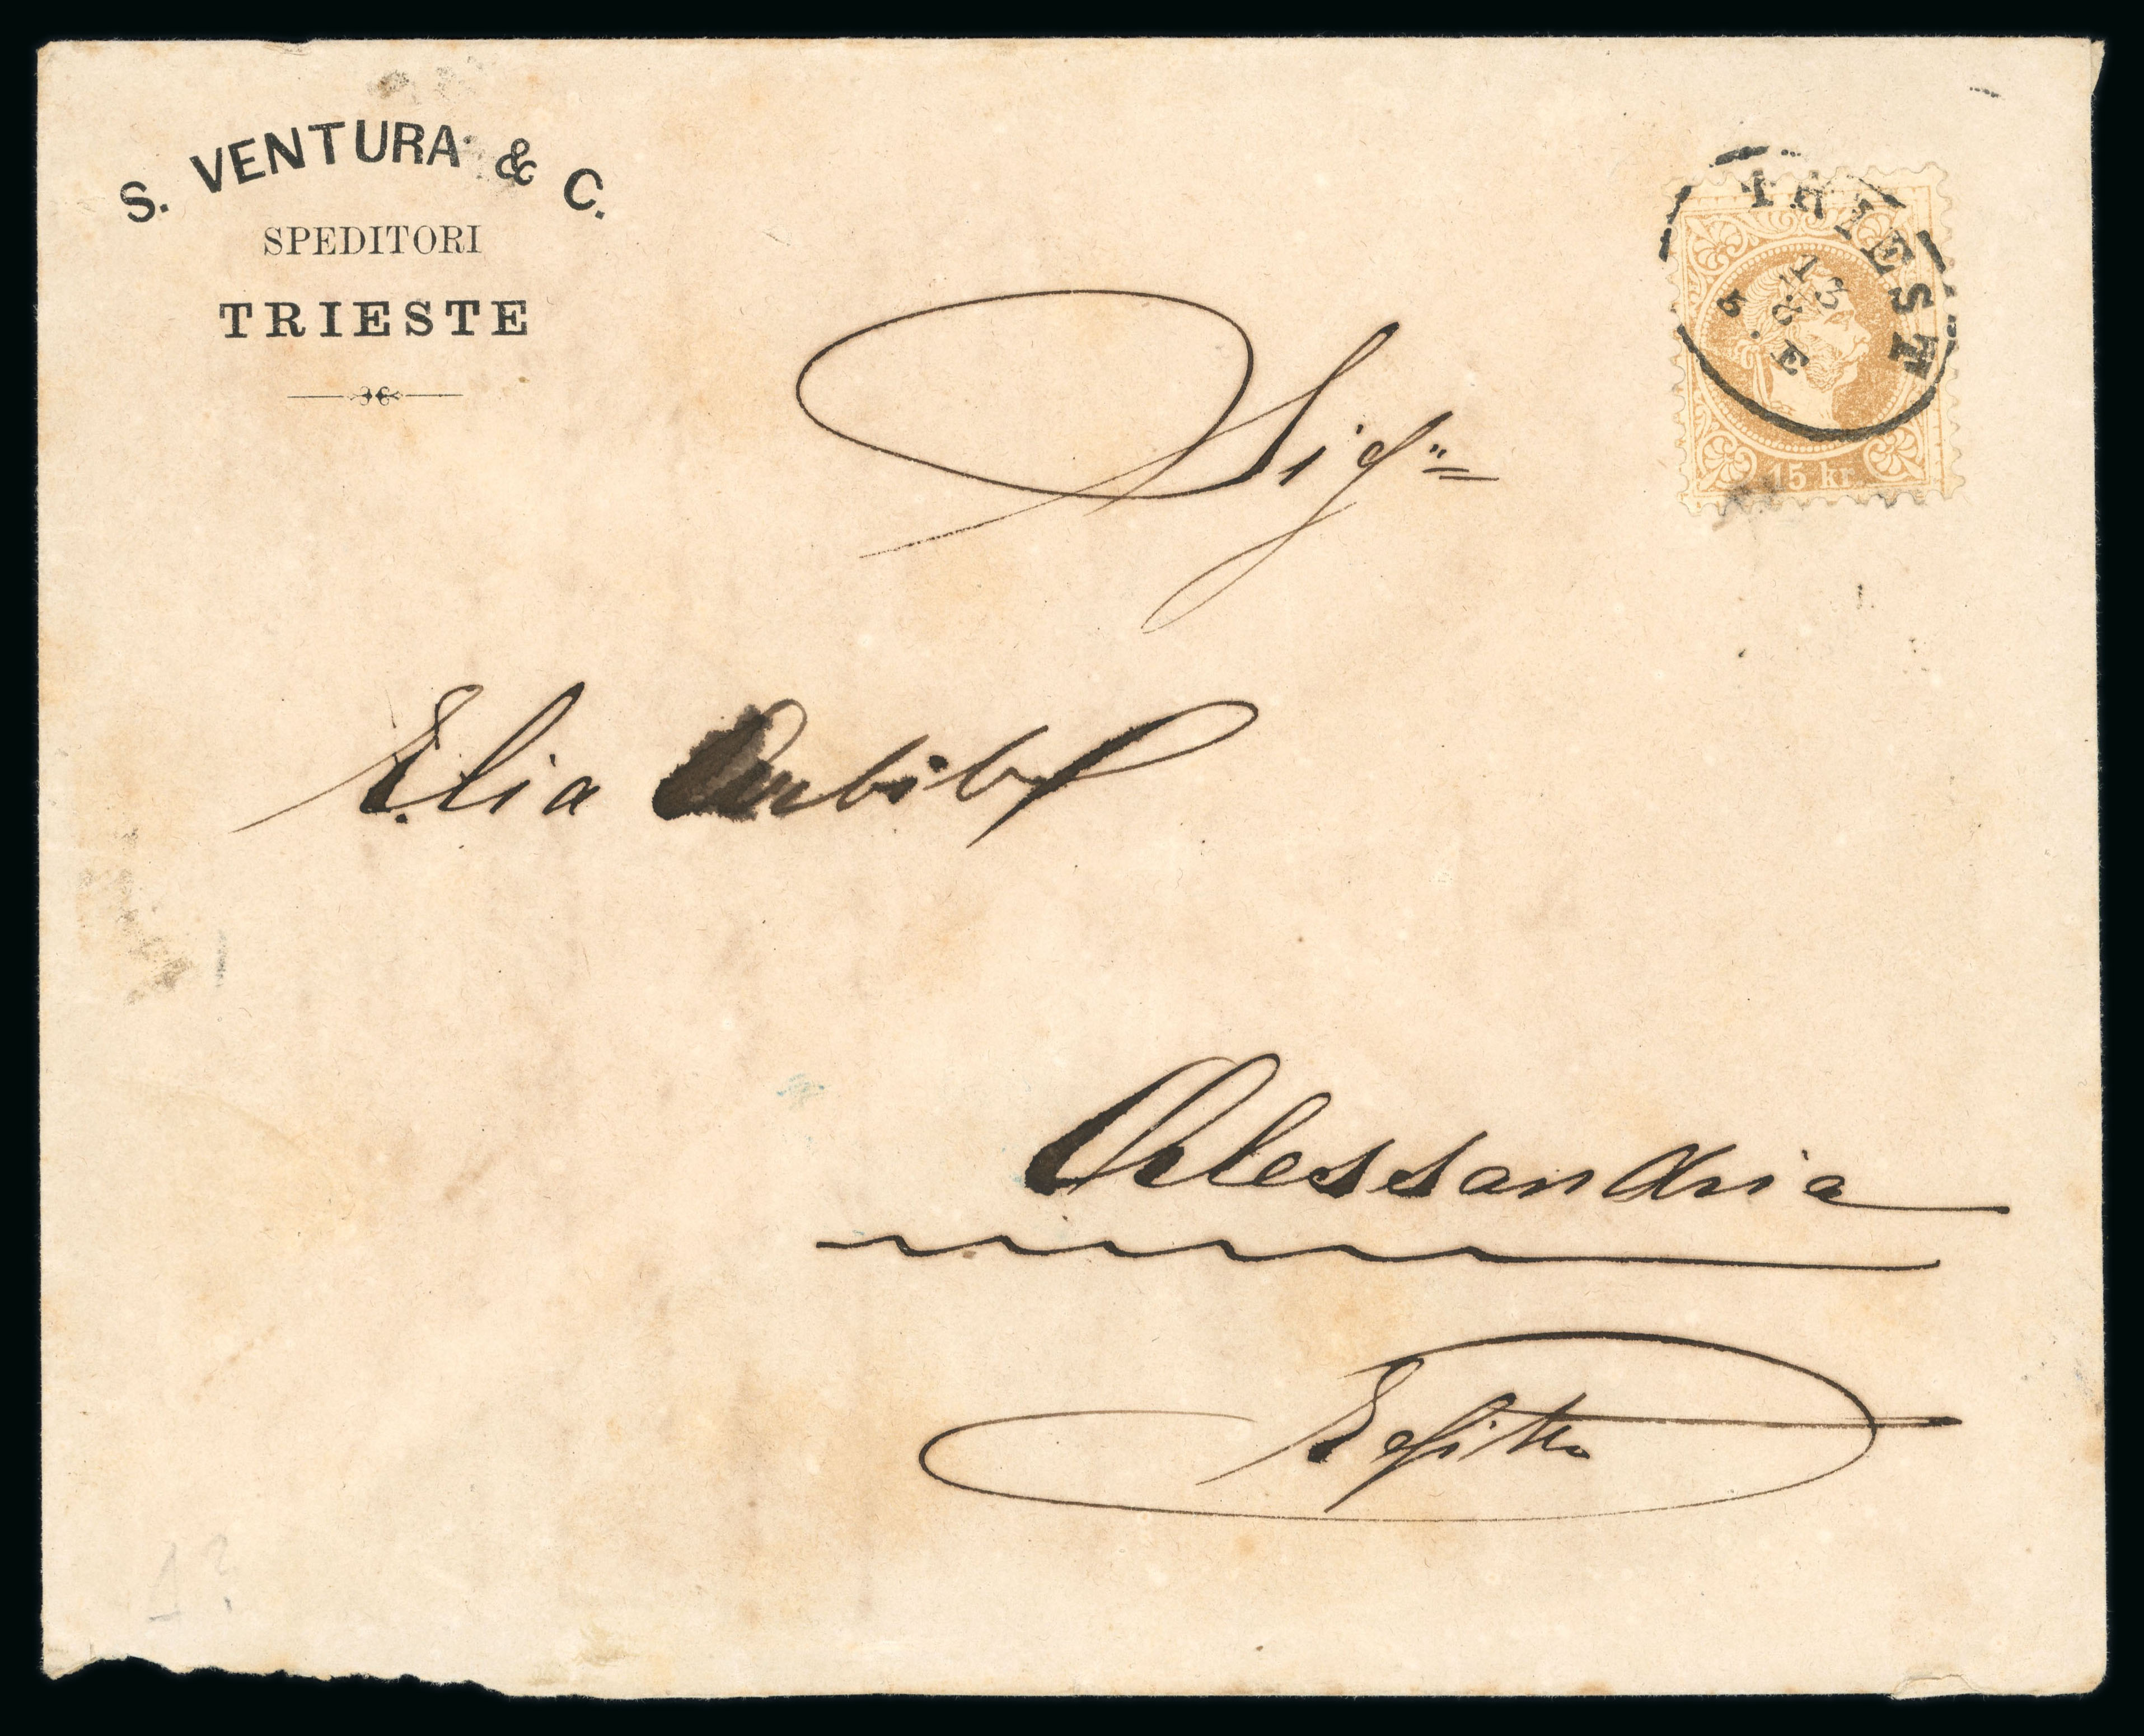 S. VENTURA & C.
SPEDITORI
TRIESTE
TRIEST
13
E
15 kr.
Sigr
Elia Arbib
Alessandria
Egitto